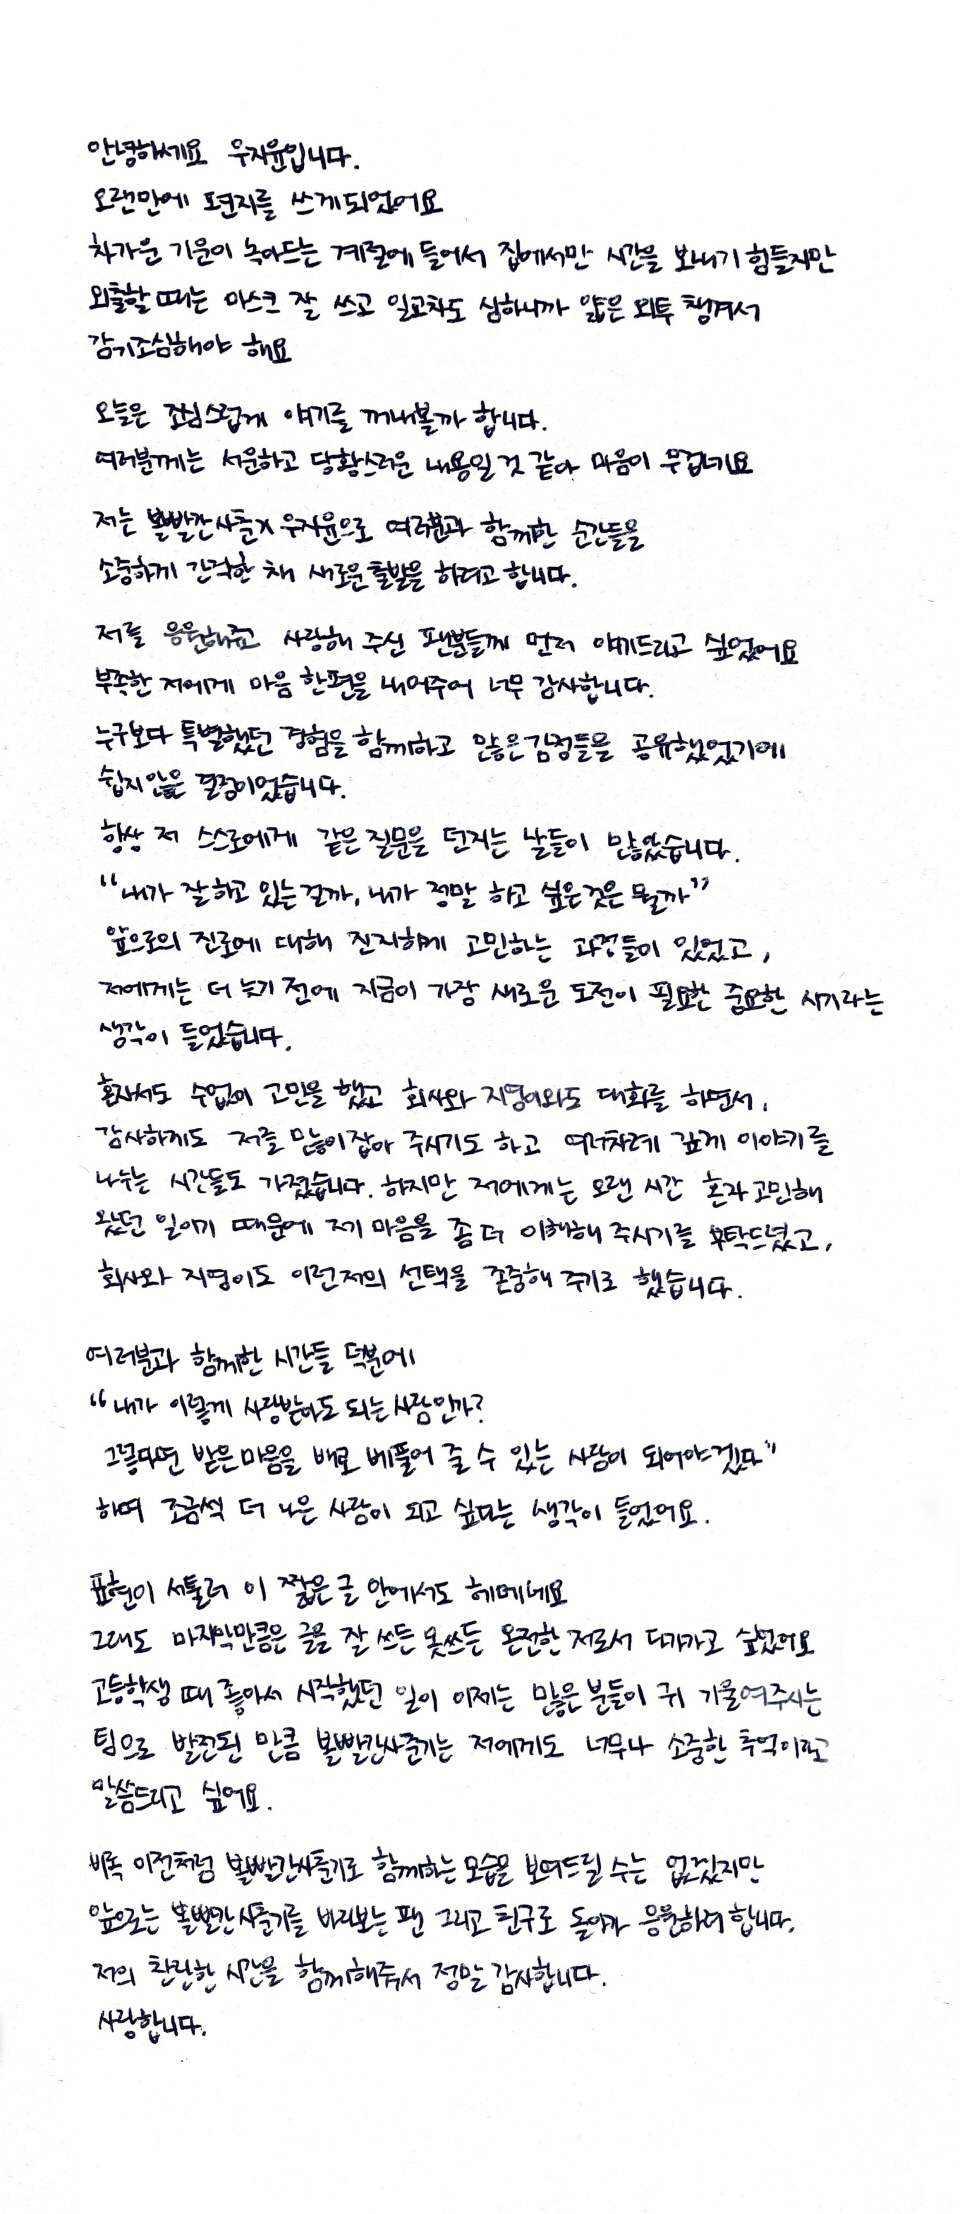 안녕하세요 우지윤입니다.
오랜만에 손편지를 쓰게되었어요
차가운 기운이 녹아드는 계절에 들어서 집에서만 시간을 보내기 힘들지만
외출할 때는 마스크 잘 쓰고 일교차도 심하니까 얇은 외투 챙겨서
감기조심해야 해요
오늘은 조심스럽게 얘기를 꺼내볼까 합니다.
여러분께는 서운하고 당황스러운 내용일 것 같아 마음이 무겁네요
저는 볼빨간사춘기 우지윤으로 여러분과 함께한 순간들을
소중하게 간직한 채 새로운 출발을 하려고 합니다.
저를 응원해주고 사랑해 주신 팬분들께 먼저 얘기드리고 싶었어요
부족한 저에게 마음 한편을 내어주어 너무 감사합니다.
누구보다 특별했던 경험을 함께하고 많은 감정들을 공유했었기에
쉽지 않은 결정이었습니다.
항상 저 스스로에게 같은 질문을 던지는 날들이 많았습니다.
“내가 잘 하고 있는 걸까, 내가 정말 하고 싶은것은 뭘까”
앞으로의 진로에 대해 진지하게 고민하는 과정들이 있었고,
저에게는 더 늦기 전에 지금이 가장 새로운 도전이 필요한 중요한 시기라는
생각이 들었습니다.
혼자서도 수없이 고민을 했고 회사와 지영이와도 대화를 하면서,
감사하게도 저를 많이 잡아 주시기도 하고 여러차례 깊게 이야기를
나누는 시간들도 가졌습니다. 하지만 저에게는 오랜 시간 혼자 고민해
왔던 일이기 때문에 제 마음을 좀 더 이해해 주시기를 부탁드렸고,
회사와 지영이도 이런저의 선택을 존중해 주기로 했습니다.
여러분과 함께한 시간들 덕분에
“내가 이렇게 사랑받아도 되는 사람인가?
그렇다면 받은 마음을 배로 베풀어 줄 수 있는 사람이 되어야겠다”
하며 조금씩 더 나은 사람이 되고 싶다는 생각이 들었어요.
표현이 서툴러 이 짧은 글 안에서도 헤메네요
그래도 마지막만큼은 글을 잘 쓰든 못쓰든 온전한 저로서 다가가고 싶었어요
고등학생 때 좋아서 시작했던 일이 이제는 많은 분들이 귀 기울여주시는
팀으로 발전된 만큼 볼빨간사춘기는 저에게도 너무나 소중한 추억이라고
말씀드리고 싶어요.
비록 이전처럼 볼빨간사춘기로 함께하는 모습을 보여드릴 수는 없겠지만
앞으로는 볼빨간사춘기를 바라보는 팬 그리고 친구로 돌아가 응원하려 합니다.
저의 찬란한 시간을 함께해줘서 정말 감사합니다.
사랑합니다.